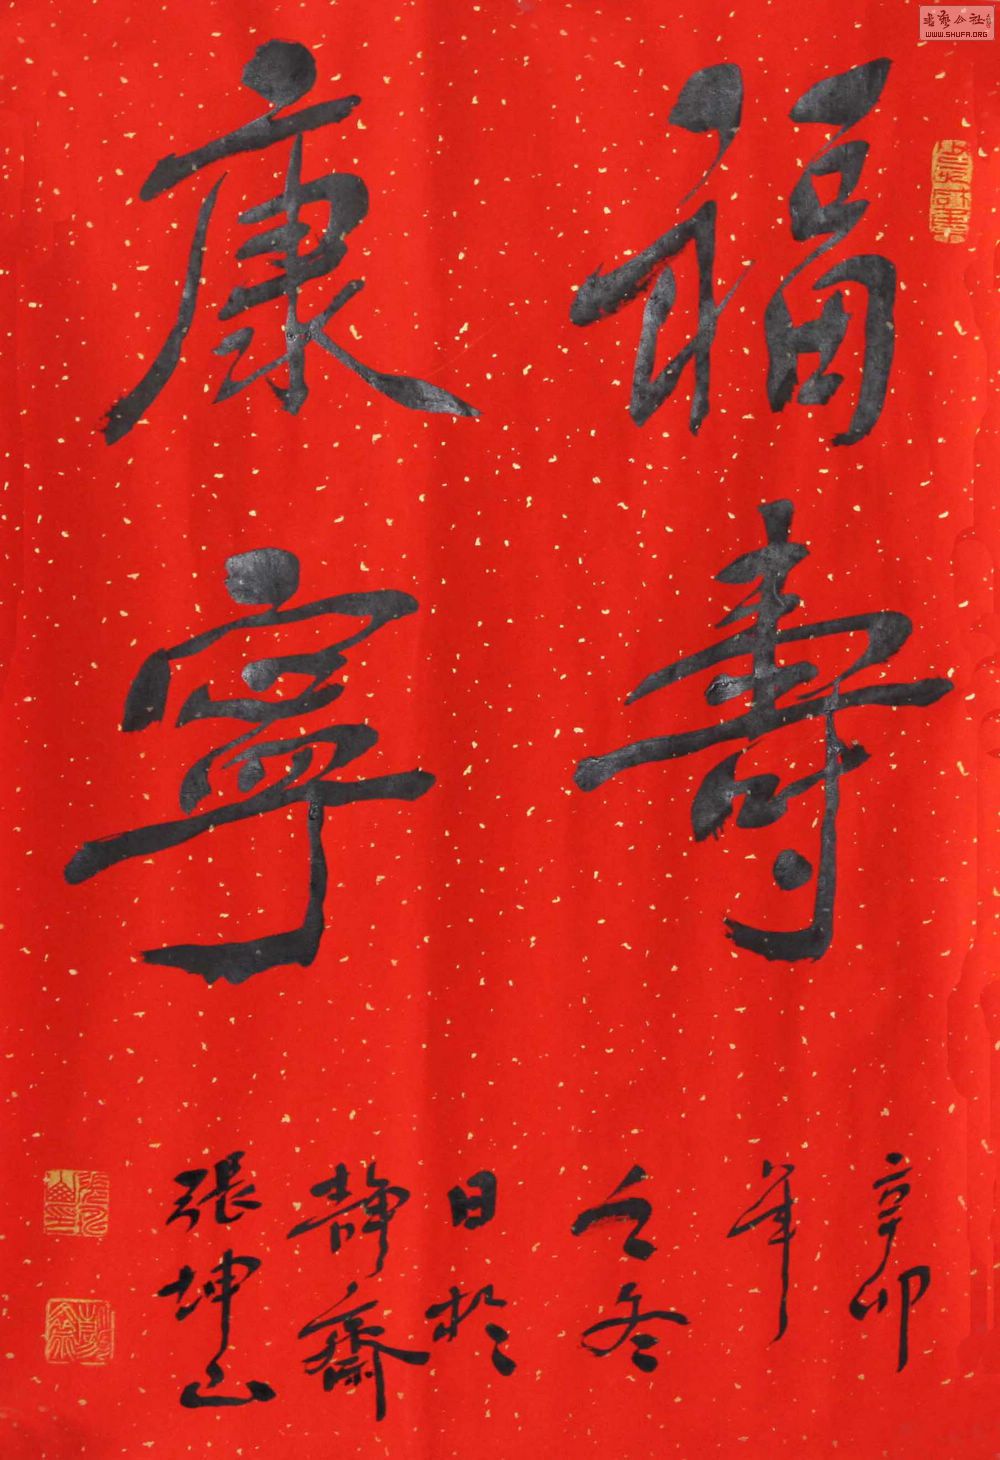 福壽
康寧
辛卯
年
之冬
日於
靜齋
張坤山
書藝公社
WWW.SHUFA.ORG